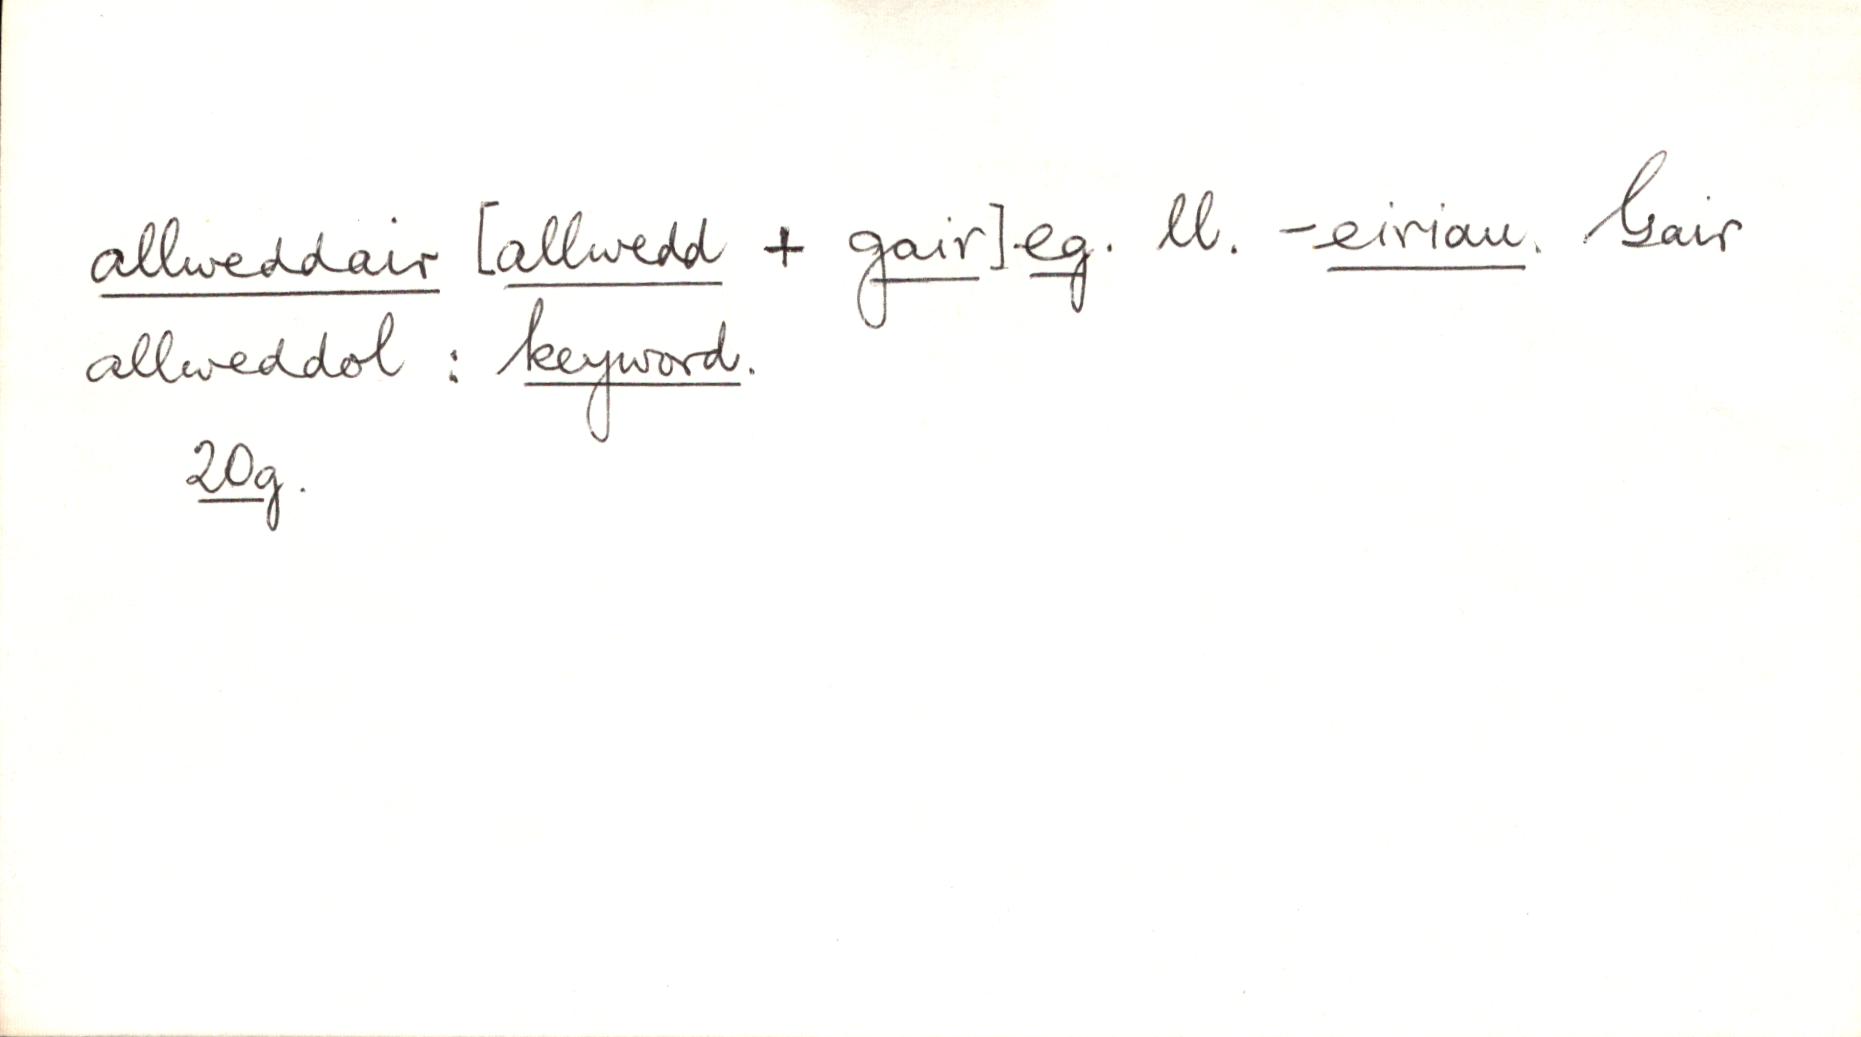 allweddair [allwedd + gair] eg. ll. -eiriau. Gair
allweddol : keyword.
20g.